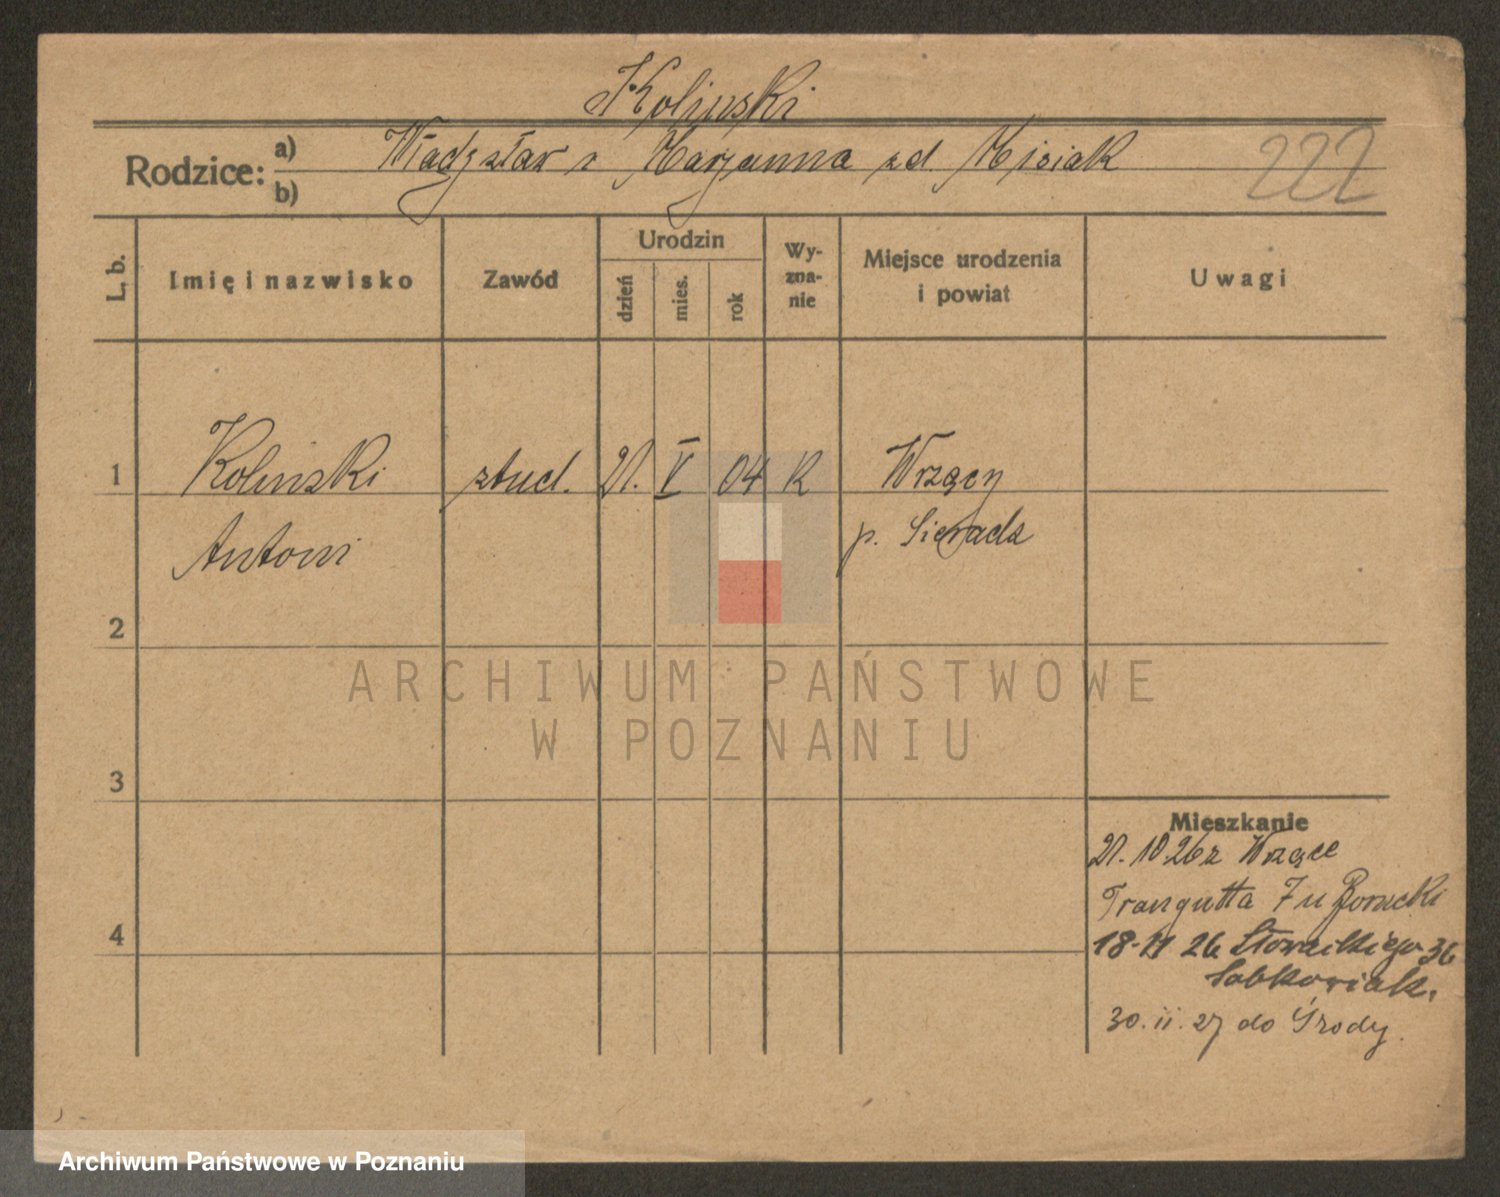 Kolinski
Rodzice: a) Władysław i Marjanna zd. Misiak
b)
222
L. b. Imię i nazwisko Zawód Urodzin dzień mies. rok Wy-zna-nie Miejsce urodzenia i powiat Uwagi
1 Kolinski stud. 21. V 04 R Wrzący
Antoni p. Sieradz
2
3
4
Mieszkanie
21. 10 26 z Wrzące
Traugutta 7 u
18-11 26 Słowackiego 36
Sobkowiak.
30. ii. 27 do Środy.
ARCHIWUM PAŃSTWOWE
W POZNANIU
Archiwum Państwowe w Poznaniu